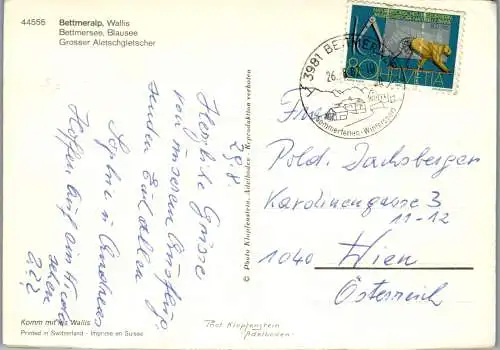 44555 Bettmeralp, Wallis
Bettmersee, Blausee
Grosser Aletschgletscher
HELVETIA
80
3981 BETTMERALP
26.
Sommerferien - Wintersport
29.8.
Herzliche Grüsse
von unserem Ausflug
senden Euch allen
Sophie u Andreas
Hoffen auf ein Wieder
sehen
© Photo Klopfenstein, Adelboden - Reproduktion verboten
Pold. Dachsberger
Kardinengasse 3
11-12
1040 Wien
Österreich
Komm mit ins Wallis
Printed in Switzerland - Imprimé en Suisse
Phot Klopfenstein
Adelboden